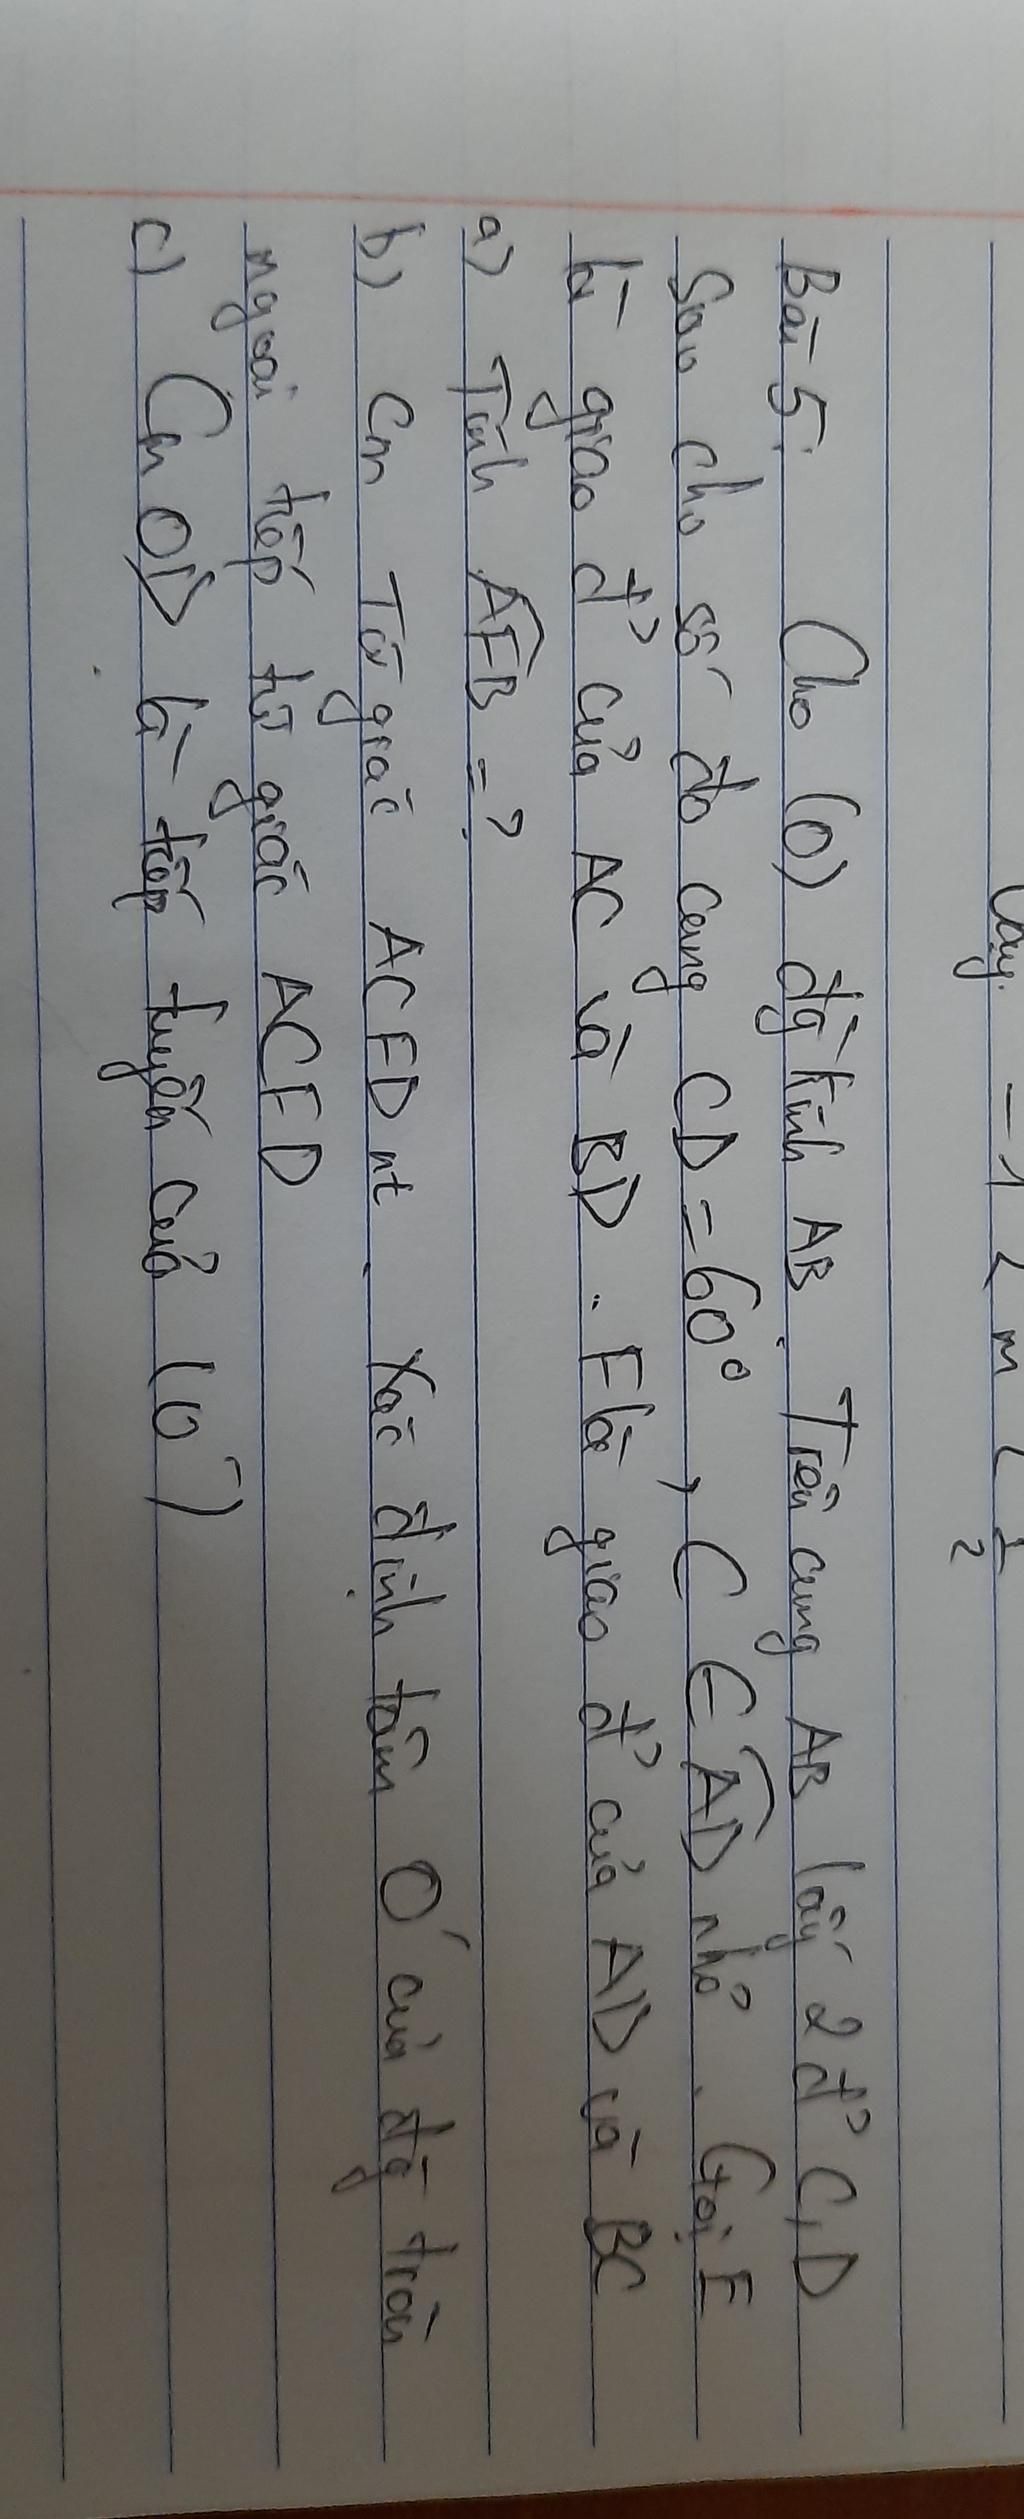 Vậy -1 < m < 1/2
Bài 5: Cho (O) đg kính AB. Trên cung AB lấy 2 đ' C, D
Sao cho số đo cung CD = 60°, C ∈ AD nhỏ. Gọi E
là giao đ' của AC và BD. F là giao đ' của AD và BC
a) Tính AEB = ?
b) Cm Tứ giác ACED nt. Xác định tâm O' của đg tròn
ngoại tiếp tứ giác ACED
c) Cm OD là tiếp tuyến của (O')